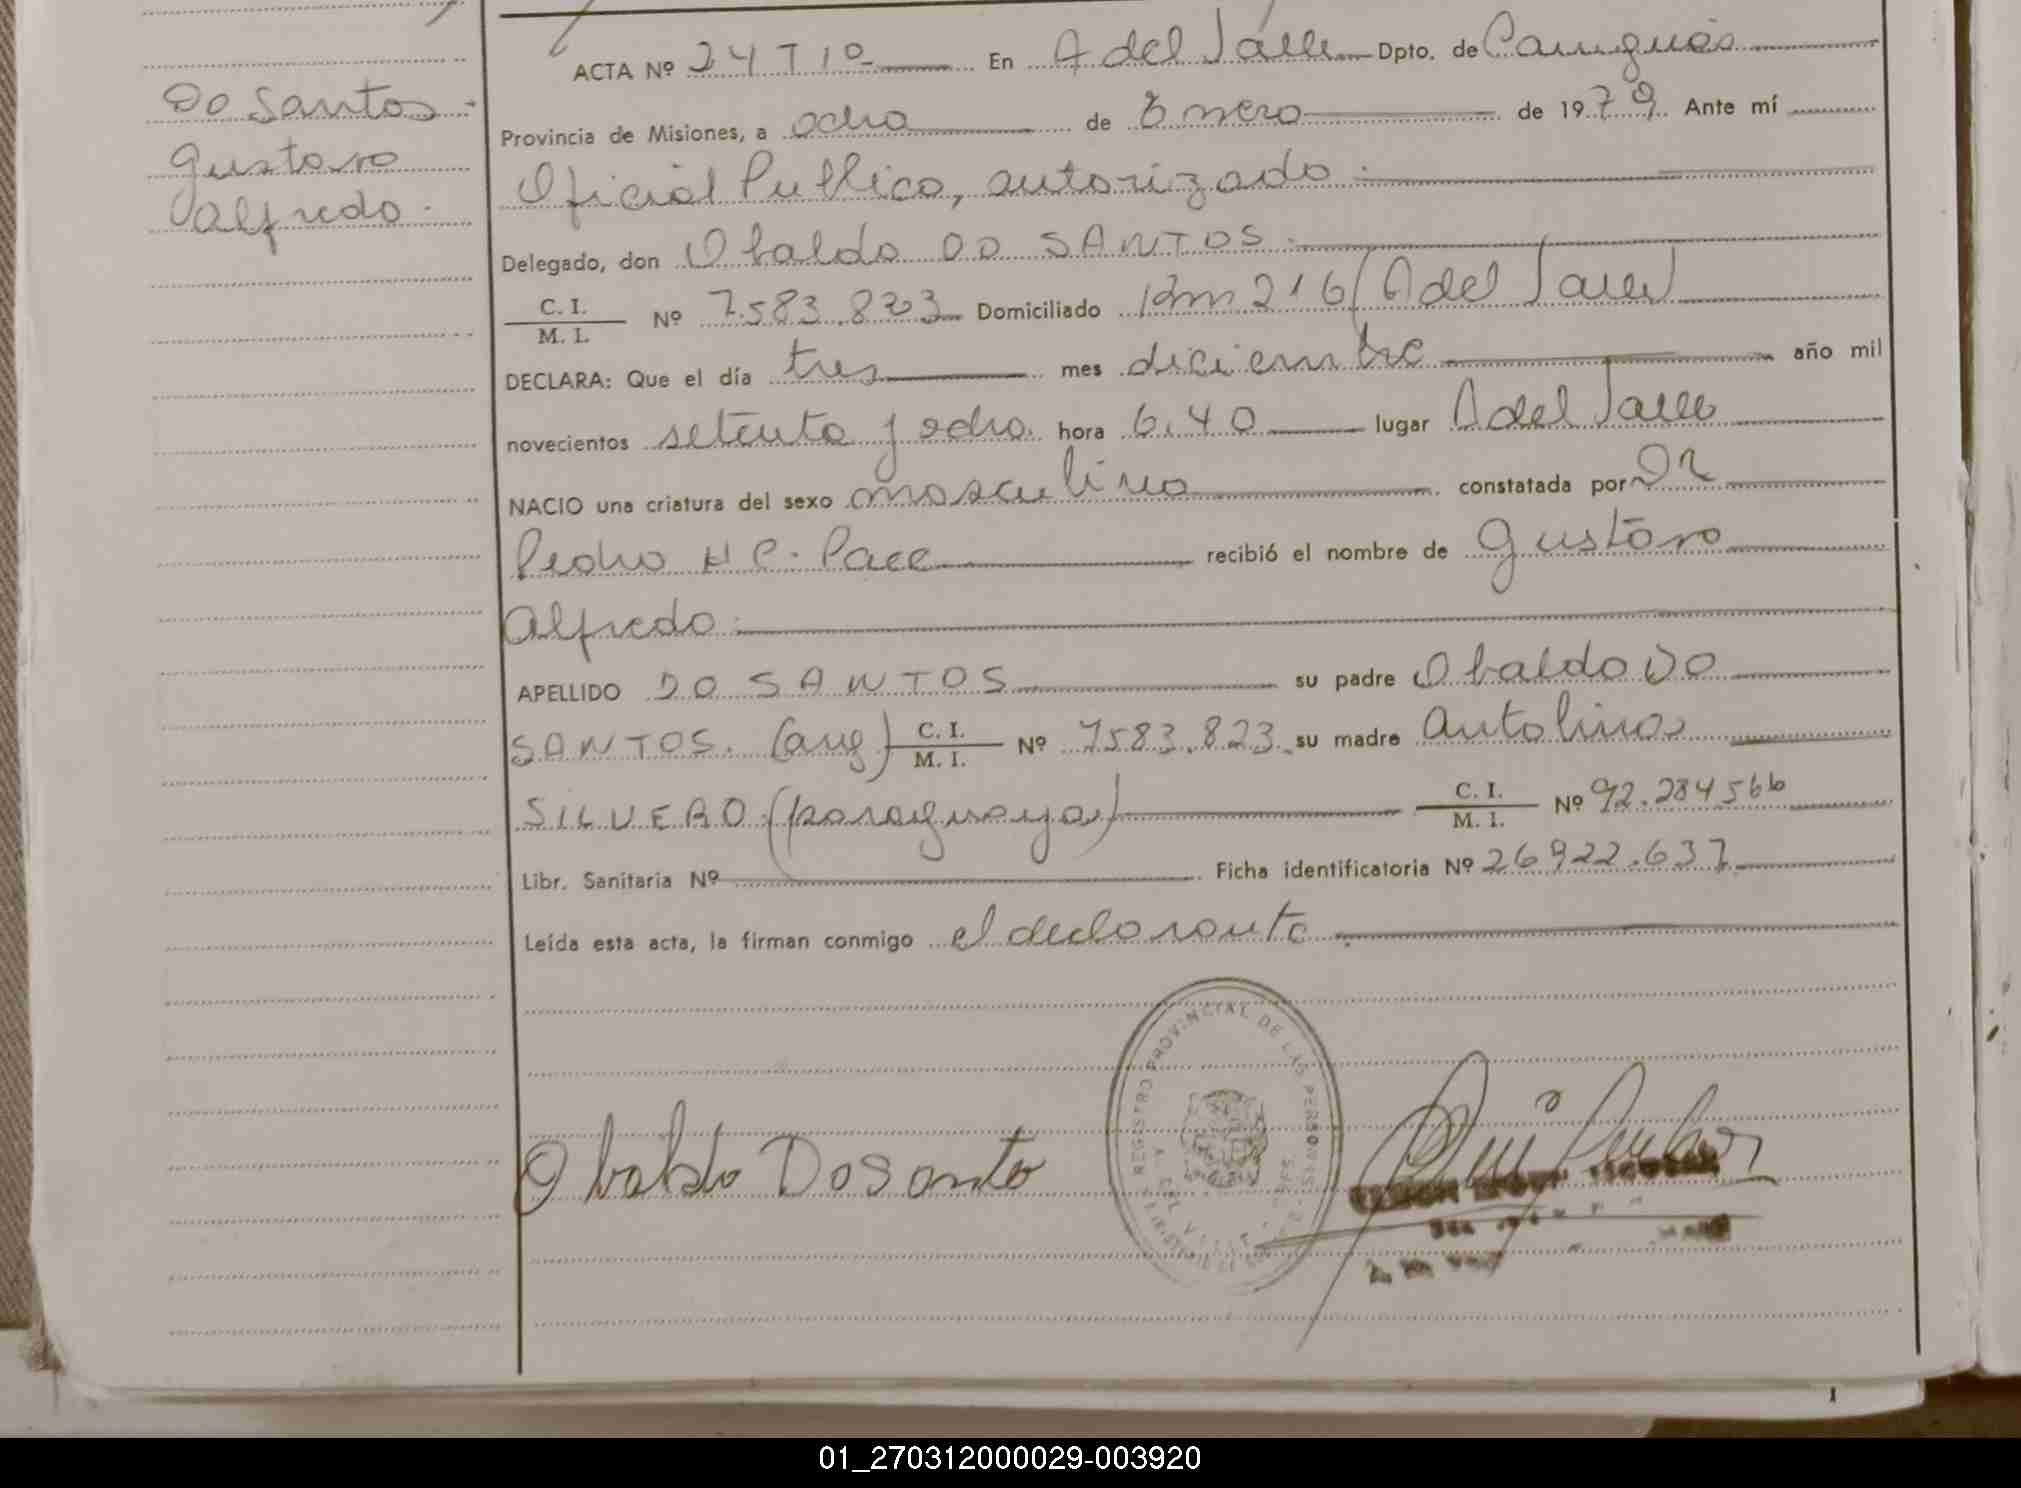 Do Santos.
Gustavo
Alfredo.
ACTA Nº 24 T 1º En A del Valle Dpto. de Cainguás
Provincia de Misiones, a ocho de Enero de 1979 Ante mí
Oficial Publico, autorizado.
Delegado, don Obaldo DO SANTOS.
C. I.
M. I. Nº 7.583.823 Domiciliado Km 216 (A del Valle)
DECLARA: Que el día tres mes diciembre año mil
novecientos setenta y ocho. hora 6.40 lugar A del Valle
NACIO una criatura del sexo masculino constatada por Dr
Pedro H C. Pace recibió el nombre de Gustavo
Alfredo.
APELLIDO DO SANTOS su padre Obaldo DO
SANTOS. (arg) C. I.
M. I. Nº 7583.823 su madre Antolina
SILVERO (paraguaya) C. I.
M. I. Nº 92.284566
Libr. Sanitaria Nº Ficha identificatoria Nº 26922.637
Leída esta acta, la firman conmigo el declarante.
REGISTRO PROVINCIAL DE LAS PERSONAS
Obaldo Do Santo
I
01_270312000029-003920